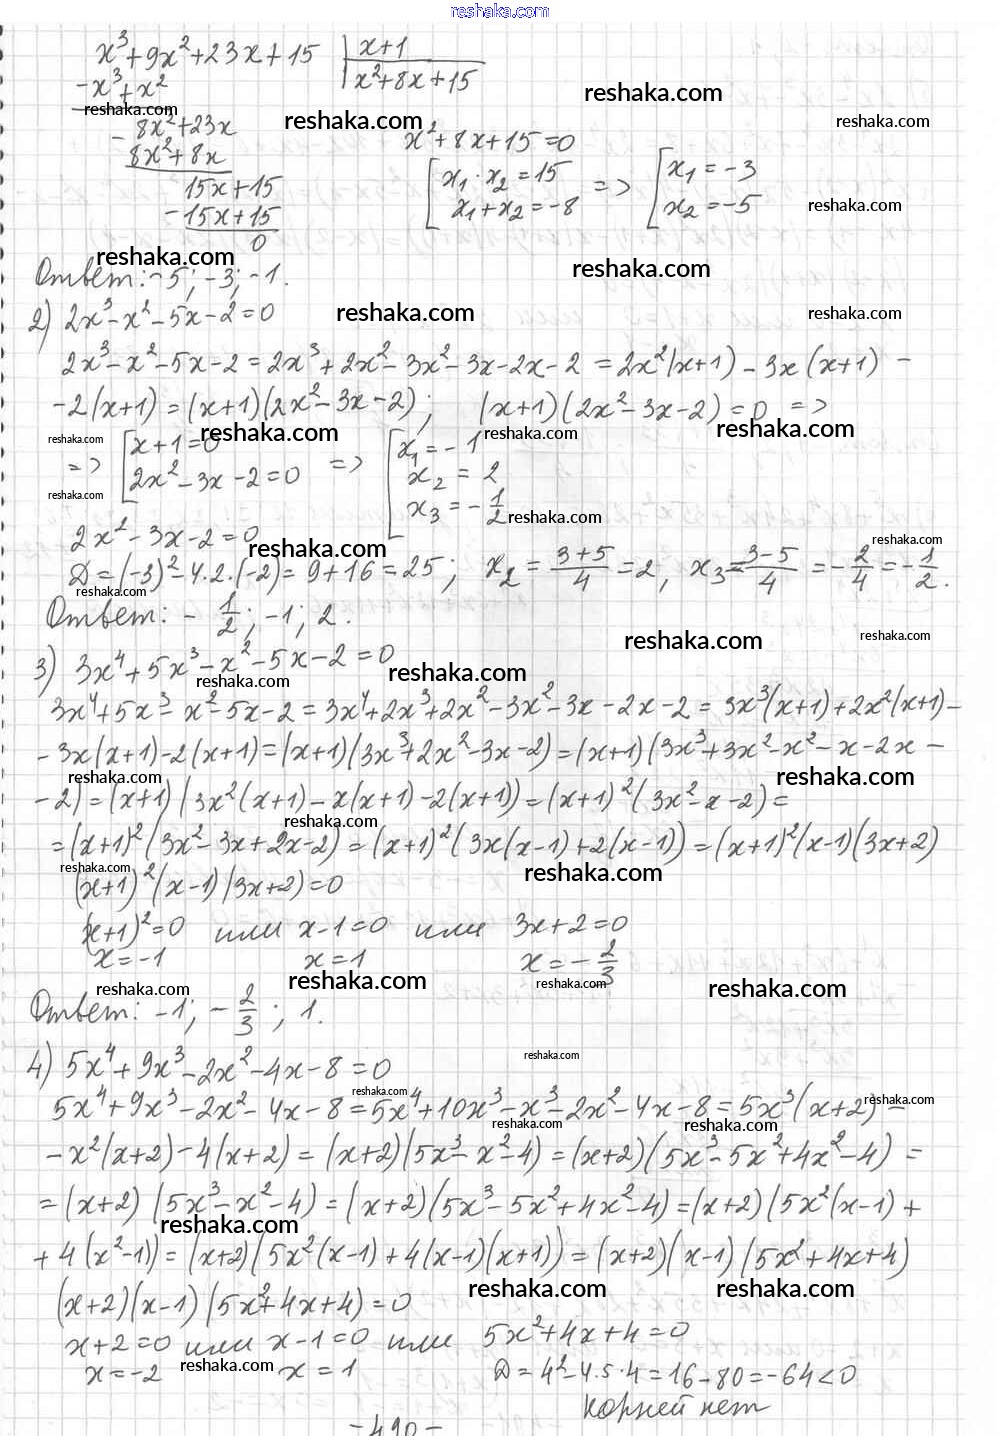 reshaka.com
x³+9x²+23x+15 | x+1
-x³+x² x²+8x+15
reshaka.com
reshaka.com reshaka.com reshaka.com
- 8x²+23x
8x²+8x x²+8x+15=0
15x+15 [x₁·x₂=15 x₁+x₂=-8 => [x₁=-3 x₂=-5
-15x+15 reshaka.com
0
reshaka.com reshaka.com
Ответ: -5; -3; -1.
2) 2x³-x²-5x-2=0 reshaka.com reshaka.com
2x³-x²-5x-2=2x³+2x²-3x²-3x-2x-2=2x²(x+1)-3x(x+1)-
-2(x+1)=(x+1)(2x²-3x-2); (x+1)(2x²-3x-2)=0 =>
reshaka.com reshaka.com reshaka.com reshaka.com
=> [x+1=0 2x²-3x-2=0 => [x₁=-1 x₂=2 x₃=-1/2
reshaka.com reshaka.com
2x²-3x-2=0
reshaka.com reshaka.com
D=(-3)²-4·2·(-2)=9+16=25; x₂=(3+5)/4=2, x₃=(3-5)/4=-2/4=-1/2.
reshaka.com
Ответ: -1/2; -1; 2.
reshaka.com reshaka.com
3) 3x⁴+5x³-x²-5x-2=0
reshaka.com reshaka.com
3x⁴+5x³-x²-5x-2=3x⁴+2x³+2x²-3x²-3x-2x-2=3x³(x+1)+2x²(x+1)-
-3x(x+1)-2(x+1)=(x+1)(3x³+2x²-3x-2)=(x+1)(3x³+3x²-x²-x-2x-
reshaka.com reshaka.com
-2)=(x+1)(3x²(x+1)-x(x+1)-2(x+1))=(x+1)²(3x²-x-2)=
reshaka.com
=(x+1)²(3x²-3x+2x-2)=(x+1)²(3x(x-1)+2(x-1))=(x+1)²(x-1)(3x+2)
reshaka.com reshaka.com
(x+1)²(x-1)(3x+2)=0
(x+1)²=0 или x-1=0 или 3x+2=0
x=-1 x=1 x=-2/3
reshaka.com reshaka.com reshaka.com reshaka.com
Ответ: -1; -2/3; 1.
4) 5x⁴+9x³-2x²-4x-8=0 reshaka.com
reshaka.com reshaka.com
5x⁴+9x³-2x²-4x-8=5x⁴+10x³-x³-2x²-4x-8=5x³(x+2)-
reshaka.com reshaka.com
-x²(x+2)-4(x+2)=(x+2)(5x³-x²-4)=(x+2)(5x³-5x²+4x²-4)=
=(x+2)(5x³-x²-4)=(x+2)(5x³-5x²+4x²-4)=(x+2)(5x²(x-1)+
reshaka.com
+4(x²-1))=(x+2)(5x²(x-1)+4(x-1)(x+1))=(x+2)(x-1)(5x²+4x+4)
reshaka.com reshaka.com
(x+2)(x-1)(5x²+4x+4)=0
x+2=0 или x-1=0 или 5x²+4x+4=0
x=-2 reshaka.com x=1 D=4²-4·5·4=16-80=-64<0
корней нет
-490-